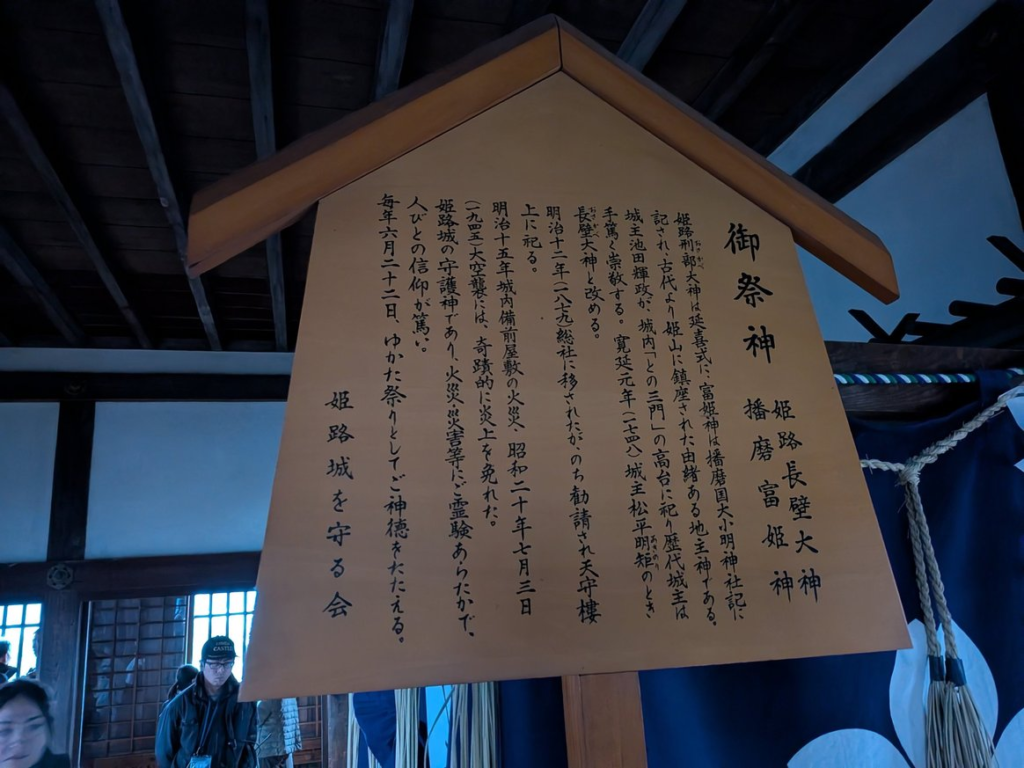 御祭神
姫路長壁大神
播磨富姫神
姫路刑部大神は延喜式に、富姫神は播磨国大小明神社記に
記され、古代より姫山に鎮座された由緒ある地主神である。
城主池田輝政が、城内「との三門」の高台に祀り歴代城主は
手篤く崇敬する。寛延元年(一七四八)城主松平明矩のとき
長壁大神と改める。
明治十二年(一八七九)総社に移されたが、のち勧請され天守樓
上に祀る。
明治十五年城内備前屋敷の火災、昭和二十年七月三日
(一九四五)大空襲には、奇蹟的に炎上を免れた。
姫路城の守護神であり、火災災害等にご霊験あらたかで、
人びとの信仰が篤い。
毎年六月二十二日、ゆかた祭りとしてご神徳をたたえる。
姫路城を守る会